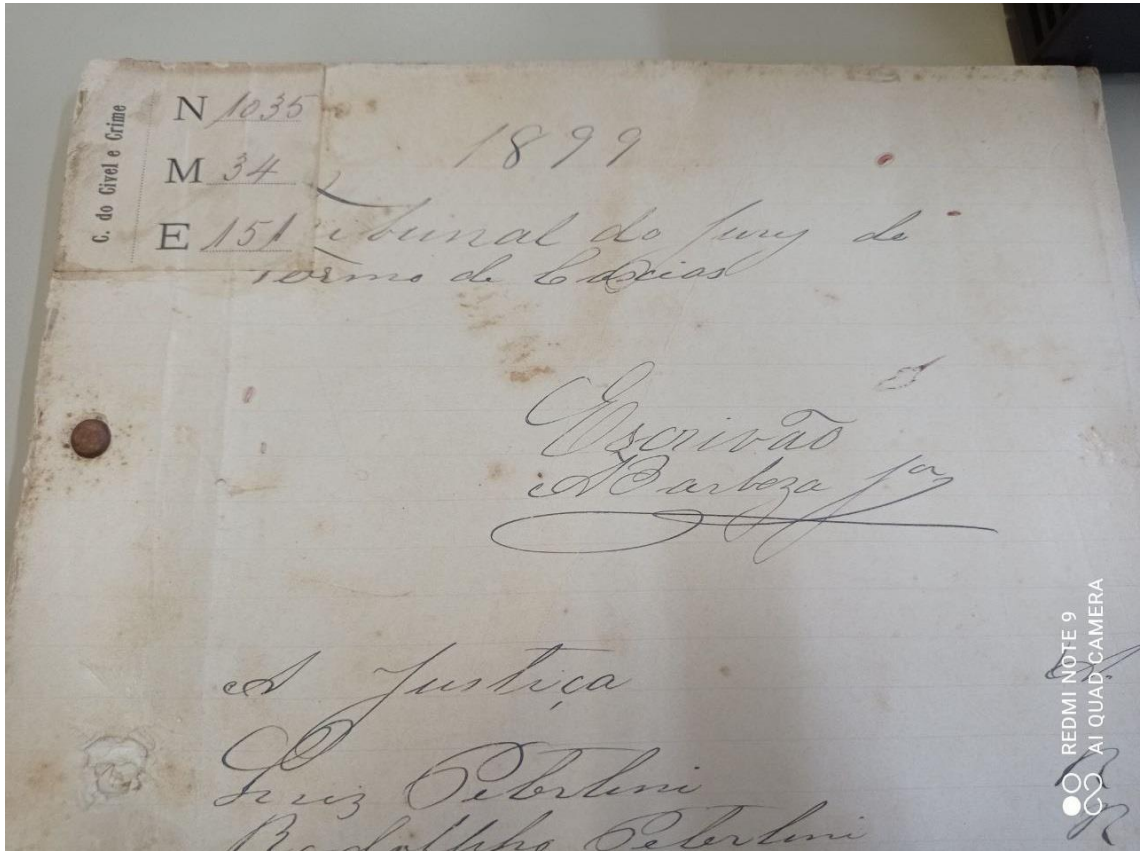 C. do Civel e Crime
N 1035
M 34
E 151
1899
Tribunal do Jury do
Termo de Caxias
Escrivão
ABarboza Jor
A Justiça A.
Luiz Peterlini R
Rodolpho Peterlini R
REDMI NOTE 9
AI QUAD CAMERA